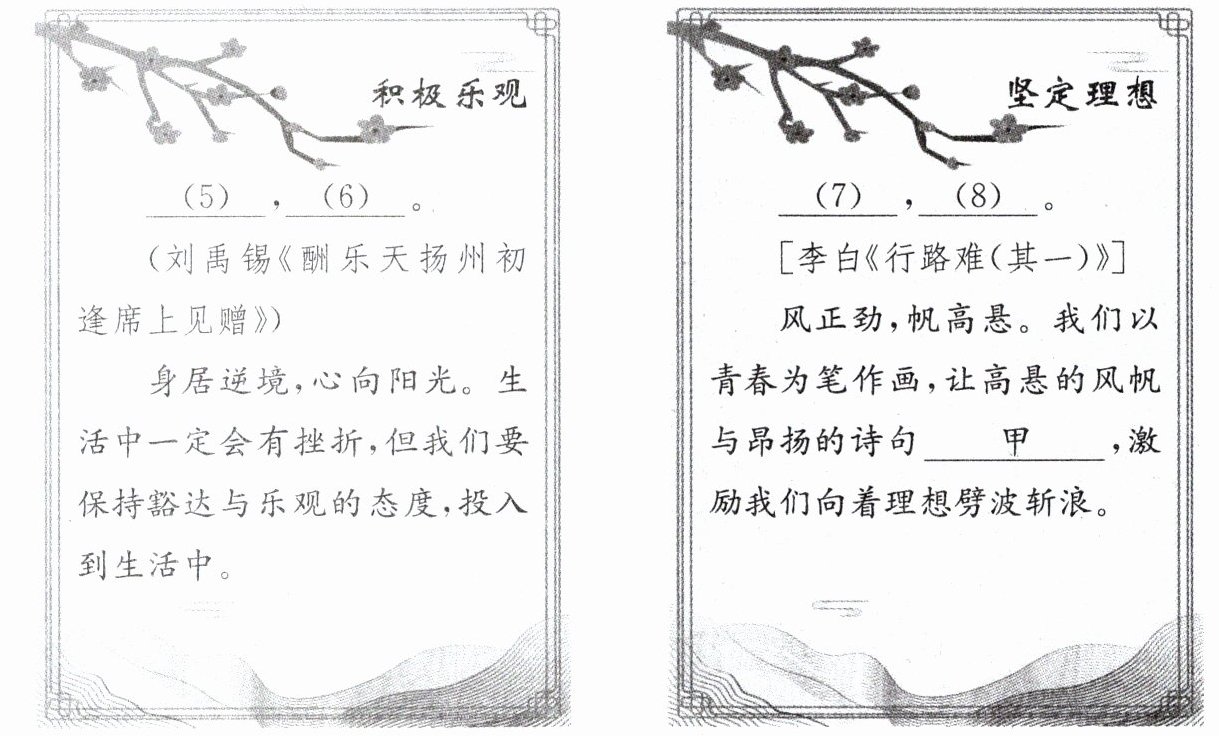 积极乐观
(5) , (6) 。
(刘禹锡《酬乐天扬州初
逢席上见赠》)
身居逆境,心向阳光。生
活中一定会有挫折,但我们要
保持豁达与乐观的态度,投入
到生活中。
坚定理想
(7) , (8) 。
[李白《行路难(其一)》]
风正劲,帆高悬。我们以
青春为笔作画,让高悬的风帆
与昂扬的诗句 甲 ,激
励我们向着理想劈波斩浪。